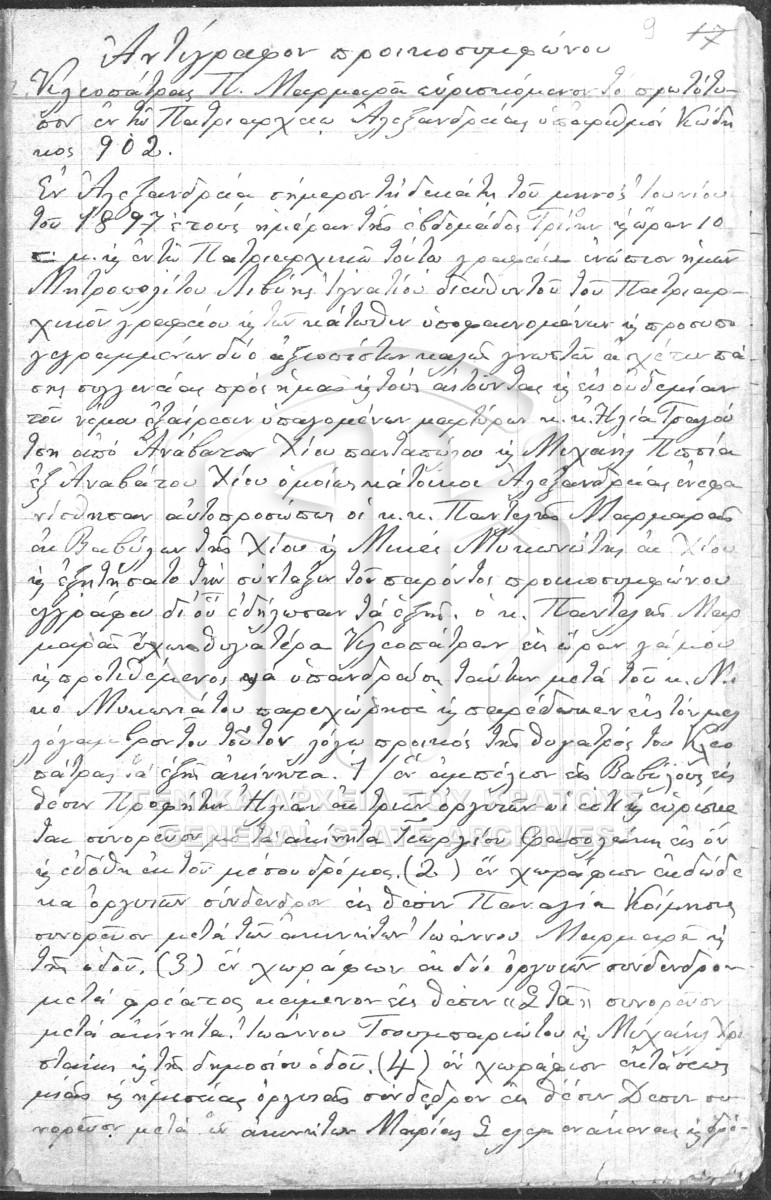 9 17
Ἀντίγραφον προικοσυμφώνου
Κλεοπάτρας Π. Μαρμαρᾶ εὑρισκόμενον τὸ πρωτότυ-
πον ἐν τῷ Πατριαρχείῳ Ἀλεξανδρείας ὑπ' ἀριθμόν Κώδη
κος 902.
Ἐν Ἀλεξανδρείᾳ σήμερον τῇ δεκάτῃ τοῦ μηνός Ἰουνίου
τοῦ 1897 ἔτους ἡμέραν τῆς ἑβδομάδος Τρίτην κ ὥραν 10
π. μ. κ ἐν τῷ Πατριαρχικῷ τούτῳ γραφείῳ ἐνώπιον ἡμῶν
Μητροπολίτου Λιβύης Ἰγνατίου διευθυντοῦ τοῦ Πατριαρ-
χικοῦ γραφείου κ τῶν κάτωθεν ὑποφαινομένων κ προσυπο
γεγραμμένων δύο ἀξιοπίστων καλῶς γνωστῶν ἀσχέτων πά
σης συγγενείας πρὸς ἡμᾶς κ τοὺς αἰτοῦντας κ εἰς οὐδεμίαν
τοῦ νόμου ἐξαίρεσιν ὑπαγομένων μαρτύρων κ. κ. Ἠλία
ἀπὸ Ἀνάβατον Χίου παντοπώλου κ Μιχαήλ
ἐξ Ἀναβάτου Χίου ὁμοίως κάτοικοι Ἀλεξανδρείας ἐνεφα
νίσθησαν αὐτοπροσώπως οἱ κ.κ. Παντελῆς Μαρμαρᾶς
ἐκ Βαβύλων τῆς Χίου κ Μικές Μυκωνιάτης ἐκ Χίου
κ ἐξητήσατο τὴν σύνταξιν τοῦ παρόντος προικοσυμφώνου
ἐγγράφου δι' οὗ ἐδήλωσαν τὰ ἑξῆς. ὁ κ. Παντελῆς Μαρ
μαρᾶς ἔχων θυγατέρα Κλεοπάτραν εἰς ὥραν γάμου
κ προτιθέμενος νά ὑπανδρεύσῃ ταύτην μετά τοῦ κ. Μι
κέ Μυκωνιάτου παρεχώρησε κ παρέδωκεν εἰς τὸν μελ
λόγαμβρόν του τοῦτον λόγῳ προικός τῆς θυγατρός του Κλεο
πάτρας τὰ ἑξῆς ἀκίνητα. 1/ ἕν ἀμπέλιον εἰς Βαβύλους εἰς
θέσιν Προφήτην Ἠλίαν ἐκ τριῶν ὀργυιῶν κ εὑρίσκε
ται συνορεῦον μὲ τὰ ἀκίνητα Γεωργίου εἰς ὅν
κ ἐδόθη ἐκ τοῦ μέσου δρόμος. (2) ἕν χωράφιον ἐκ δώδε
κα ὀργυιῶν σύνδενδρον εἰς θέσιν Παναγία Κοίμησις
συνορεῦον μετὰ τῶν ἀκινήτων Ἰωάννου Μαρμαρᾶ κ
τῆς ὁδοῦ. (3) ἕν χωράφιον ἐκ δύο ὀργυιῶν σύνδενδρον
μετά φρέατος κείμενον εἰς θέσιν συνορεῦον
μετά ἀκίνητα Ἰωάννου κ Μιχαήλ Χρι
στάκη κ τῆς δημοσίου ὁδοῦ. (4) ἕν χωράφιον ἐκτάσεως
μιᾶς κ ἡμισείας ὀργυιᾶς σύνδεδρον εἰς θέσιν συ
νορεῦον μετά τῶν ἀκινήτων Μαρίας κ δρό-
ΓΕΝΙΚΑ ΑΡΧΕΙΑ ΤΟΥ ΚΡΑΤΟΥΣ
GENERAL STATE ARCHIVES